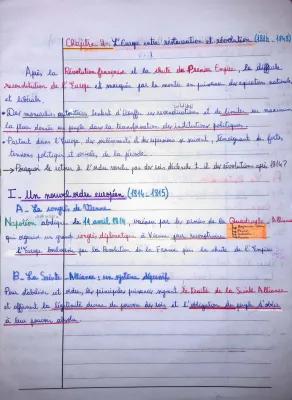 Chapitre 2: L'Europe entre restauration et révolution (1814-1848)
Après la Révolution française et la chute du Premier Empire, la difficile
reconstitution de l'Europe est marquée par la montée en puissance des aspirations nationales
et libérales.
Des monarchies autoritaires tentent d'étouffer ces revendications et de limiter au maximum
la place donnée au peuple dans la transformation des institutions politiques.
Partout dans l'Europe, des mouvements et des répressions se suivent, témoignant de fortes
tensions politiques et sociales de la période.
→ Pourquoi le retour à l'ordre voulu par les rois débouche t-il des révolutions après 1814?
I - Un nouvel ordre européen (1814-1815)
A - Le congrès de Vienne
Napoléon abdique le 11 avril 1814, vaincu par les armées de la Quadruple Alliance
qui organise un grand congrès diplomatique à Vienne pour reconstruire
l'Europe bouleversée par la Révolution de la France puis la chute de l'Empire
B - La Sainte Alliance: un système répressif
Pour stabiliser cet ordre, les principales puissances signent le Traité de la Sainte Alliance
et affirment la légitimité divine du pouvoir des rois et l'obligation du peuple d'obéir
à leur pouvoir absolu.